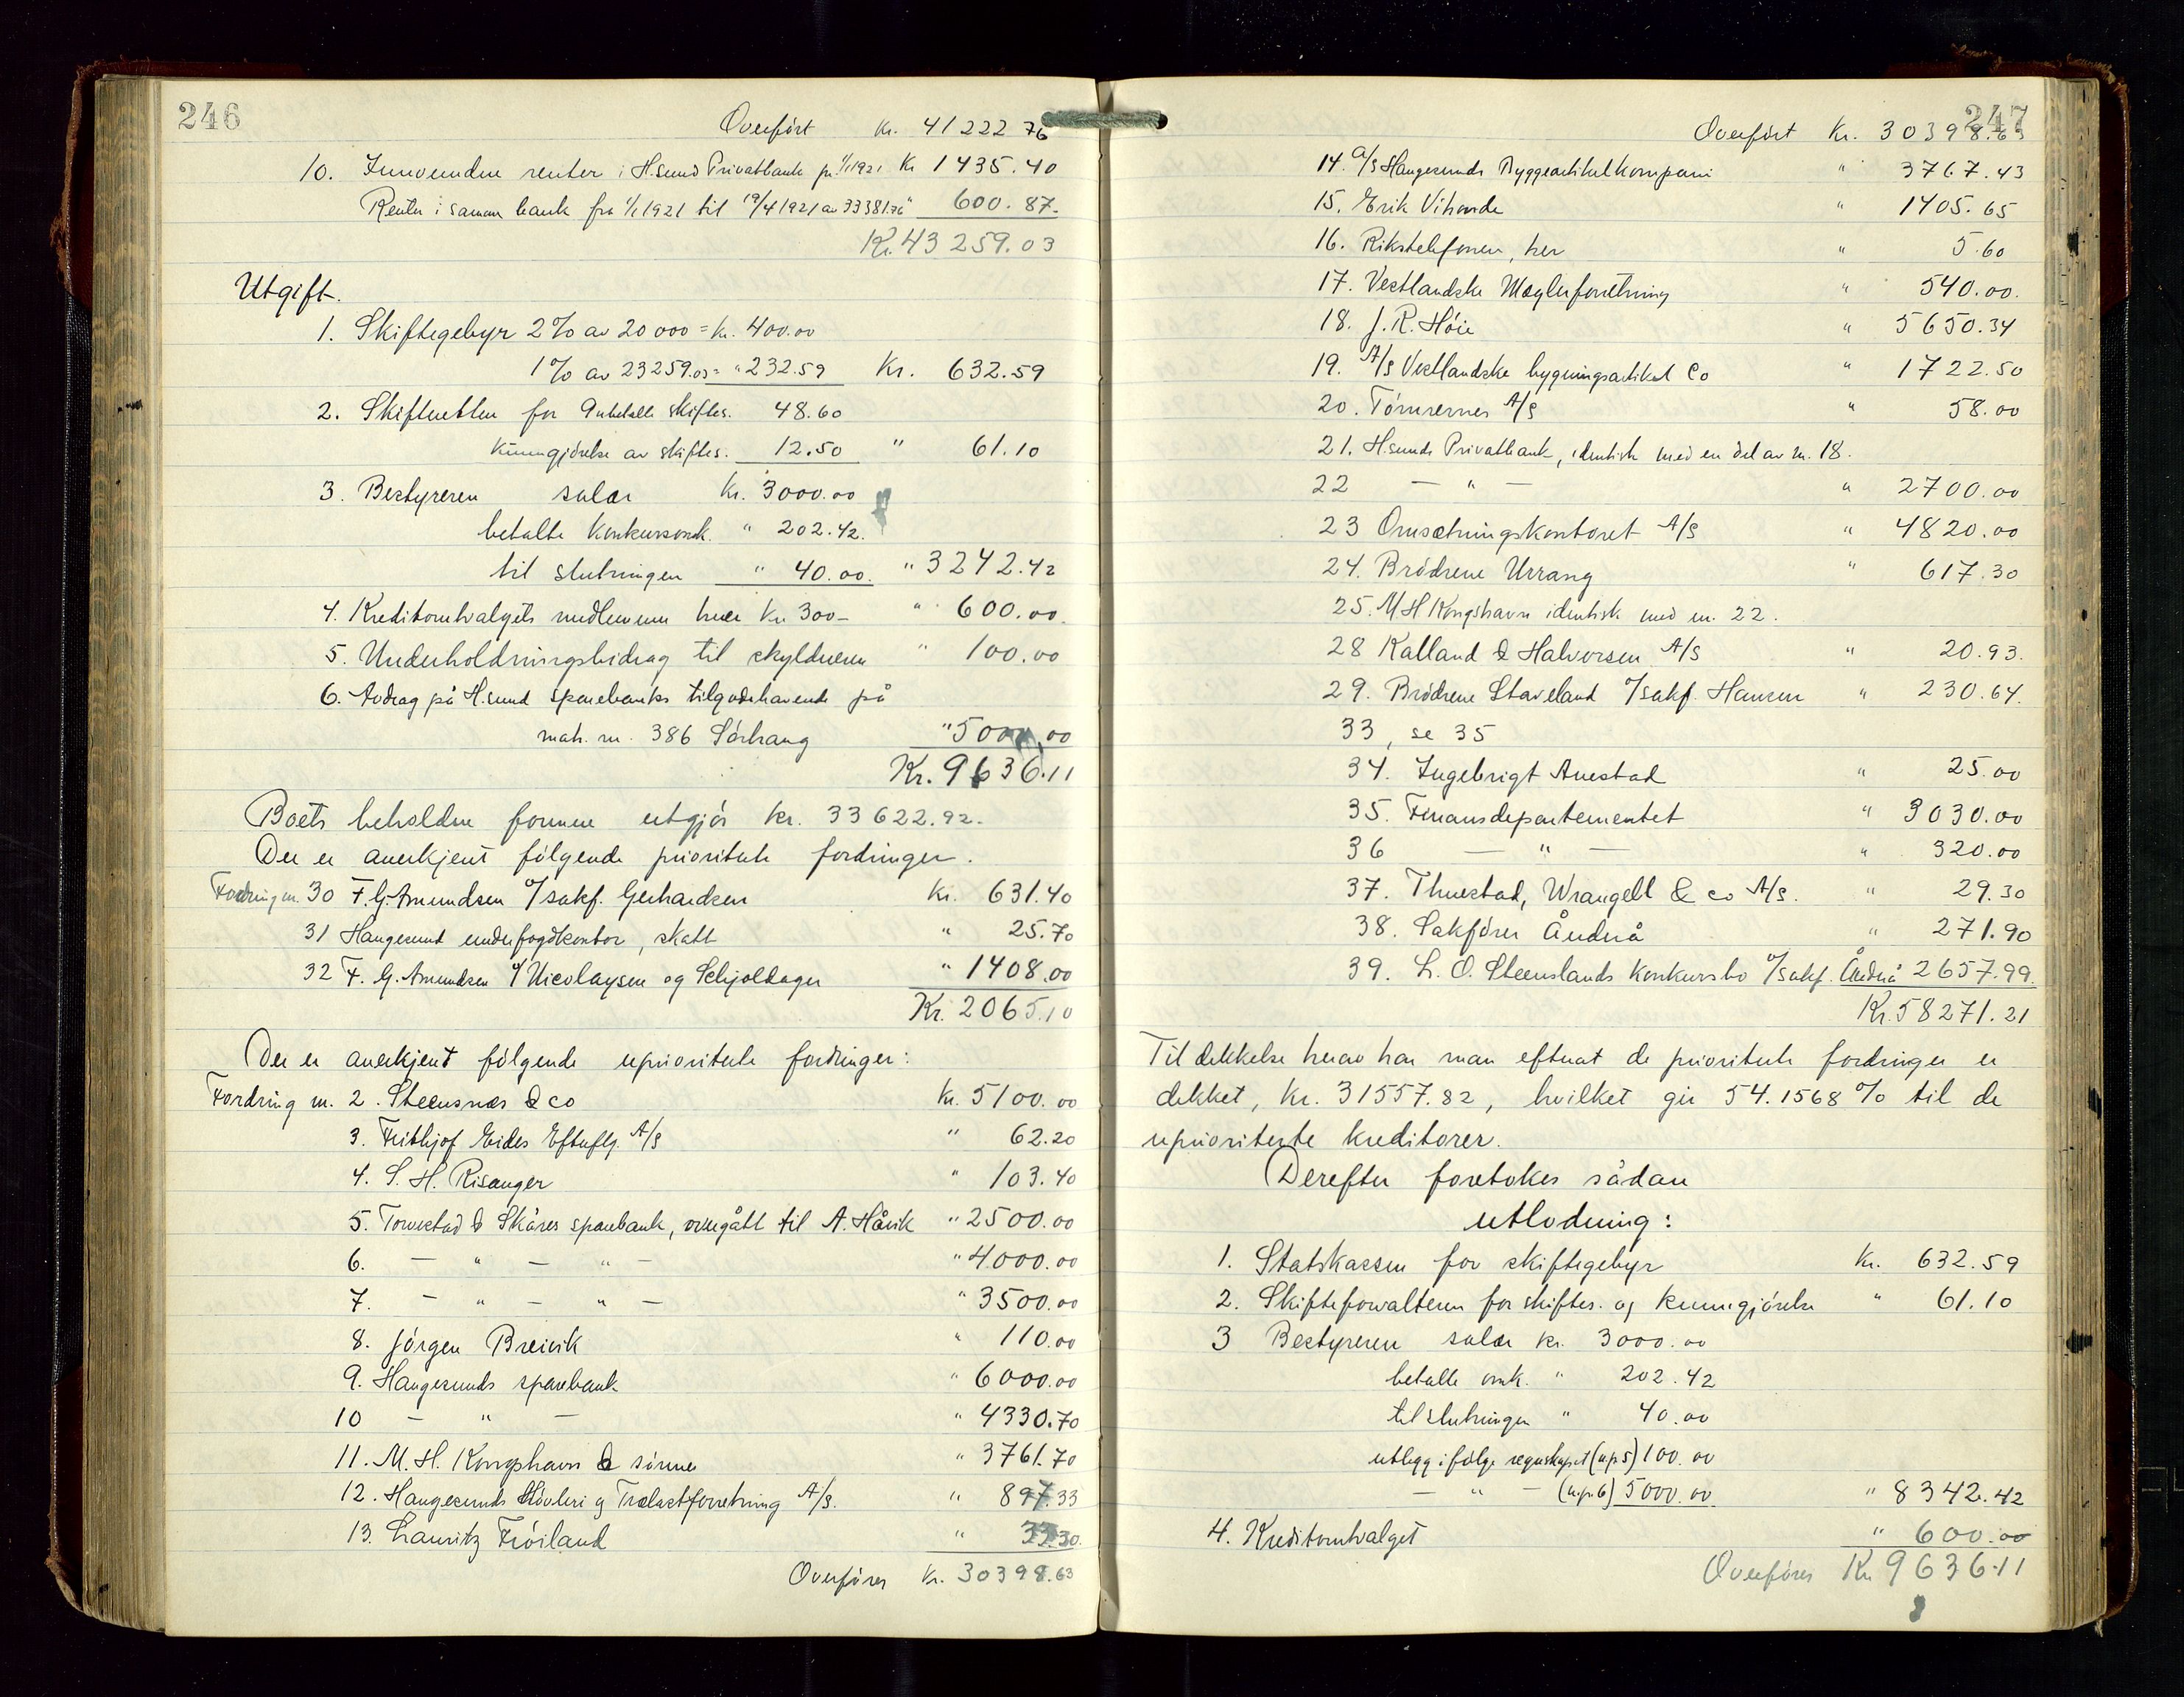 246
Overført Kr. 41222 76
10. Innvundne renter i H.sund Privatbank pr. 1/1 1921 Kr 1435.40
Renter i samme bank fra 1/1 1921 til 19/4 1921 av 33381.76 " 600.87
Kr. 43259.03
Utgift.
1. Skiftegebyr 2% av 20000 = Kr. 400.00
1% av 23259.03 = " 232.59 Kr. 632.59
2. Skifteretten for anbefalte skiftes. 48.60
kunngjørelse av skiftes. 12.50 " 61.10
3. Bestyreren salær Kr. 3000.00
betalte konkursomk. " 202.42.
til slutningen " 40.00. " 3242.42
4. Kreditorutvalgets medlemmer hver Kr 300- " 600.00.
5. Underholdningsbidrag til skyldneren " 100.00
6. Avdrag på H.sund sparebanks tilgodehavende på
matr. nr. 386 Sørhaug " 5000.00
Kr. 9636.11
Boets beholdne formue utgjør kr. 33622.92.
Der er anerkjent følgende prioriterte fordringer.
Fordring nr. 30 F. G. Amundsen v/ sakf. Gerhardsen Kr. 631.40
31 Haugesund underfogdkontor, skatt " 25.70
32 F. G. Amundsen v/ Nicolaysen og Schjoldager " 1408.00
Kr. 2065.10
Der er anerkjent følgende uprioriterte fordringer:
Fordring nr. 2. Steensnæs & co Kr. 5100.00
3. Frithjof Eides Eftuflg. A/S " 62.20
4. S. H. Risanger " 103.40
5. Torvestad & Skåres sparebank, overgått til A. Håvik " 2500.00
6. — " — " — " 4000.00
7. — " — " — " 3500.00
8. Jørgen Breivik " 110.00
9. Haugesunds sparebank " 6000.00
10 — " — " 4330.70
11. M. H. Kongshavn & sønner " 3761.70
12. Haugesunds Høvleri og Trælastforretning A/S. " 897.33
13. Lauritz Frøiland " 33.30.
Overføres Kr. 30398.63
247
Overført Kr. 30398.63
14. A/S Haugesunds Byggeartikelkompani " 3767.43
15. Erik Vihovde " 1405.65
16. Rikstelefonen, her " 5.60
17. Vestlandske Mæglerforretning " 540.00.
18. J. R. Høie " 5650.34
19. A/S Vestlandske bygningsartikel Co " 1722.50
20. Tømrernes A/S " 58.00
21. H.sunds Privatbank, identisk med en del av nr. 18.
22 — " — " 2700.00
23 Omsætningskontoret A/S " 4820.00
24. Brødrene Urrang " 617.30
25. M H Kongshavn identisk med nr. 22.
28 Kalland & Halvorsen A/S " 20.93.
29. Brødrene Staveland v/ sakf. Hansen " 230.64.
33, se 35
34. Ingebrigt Auestad " 25.00
35. Finansdepartementet " 3030.00
36 — " — " 320.00
37. Thuestad, Wrangell & co A/S. " 29.30
38. Sakfører Åndrå " 271.90
39. L. O. Steenslands konkursbo v/ sakf. Åndrå 2657.99.
Kr. 58271.21
Til dekkelse herav har man efterat de prioriterte fordringer er
dekket, Kr. 31557.82, hvilket gir 54.1568 % til de
uprioriterte kreditorer.
Derefter foretokes sådan
utlodning:
1. Statskassen for skiftegebyr Kr. 632.59
2. Skifteforvalteren for skiftes. og kunngjørelse " 61.10
3 Bestyreren salær kr. 3000.00
betalte omk. " 202.42
til slutningen " 40.00
utlegg ifølge regnskapet (u.p. 5) 100.00
— " — (u.p. 6) 5000.00 " 8342.42
4. Kreditorutvalget " 600.00
Overføres Kr. 9636.11